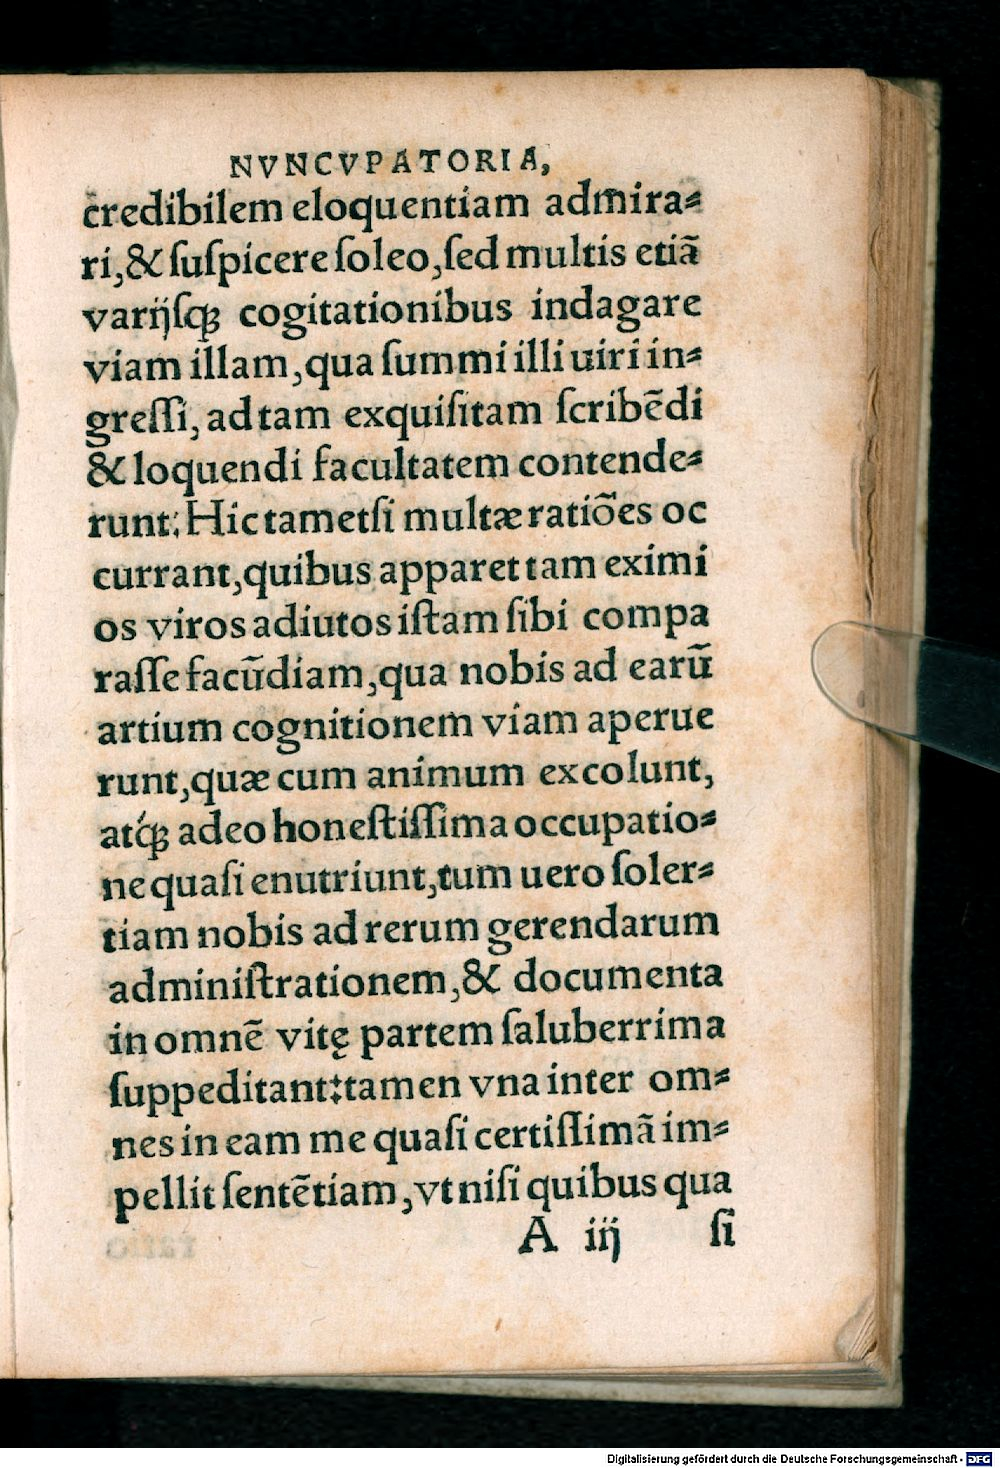 NVNCVPATORIA,
credibilem eloquentiam admira⸗
ri,& ſuſpicere ſoleo,ſed multis etiã
varijſq́ꝫ cogitationibus indagare
viam illam,qua ſummi illi uiri in⸗
greſſi, ad tam exquiſitam ſcribẽdi
& loquendi facultatem contende⸗
runt. Hic tametſi multæ ratiões oc
currant,quibus apparet tam eximi
os viros adiutos iſtam ſibi compa
raſſe facũdiam,qua nobis ad earũ
artium cognitionem viam aperue
runt,quæ cum animum excolunt,
atq́ꝫ adeo honeſtiſſima occupatio⸗
ne quaſi enutriunt,tum uero ſoler⸗
tiam nobis ad rerum gerendarum
adminiſtrationem,& documenta
in omnẽ vitę partem ſaluberrima
ſuppeditant:tamen vna inter om⸗
nes in eam me quaſi certiſſimã im⸗
pellit ſentẽtiam,vt niſi quibus qua
A iij ſi
Digitalisierung gefördert durch die Deutsche Forschungsgemeinschaft - DFG